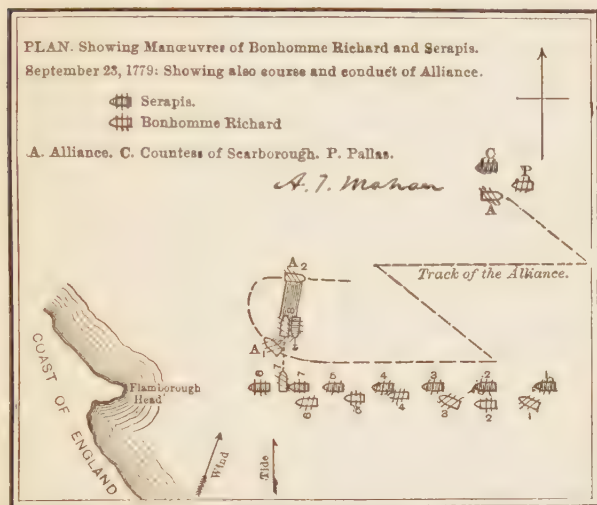 PLAN. Showing Manœuvres of Bonhomme Richard and Serapis.
September 23, 1779: Showing also course and conduct of Alliance.
Serapis.
Bonhomme Richard
A. Alliance. C. Countess of Scarborough. P. Pallas.
A. T. Mahan
C
P
A
Track of the Alliance.
A2
8
A1
7
8 7 5 4 3 2 1
6 5 4 3 2 1
COAST OF ENGLAND
Flamborough
Head
Wind
Tide